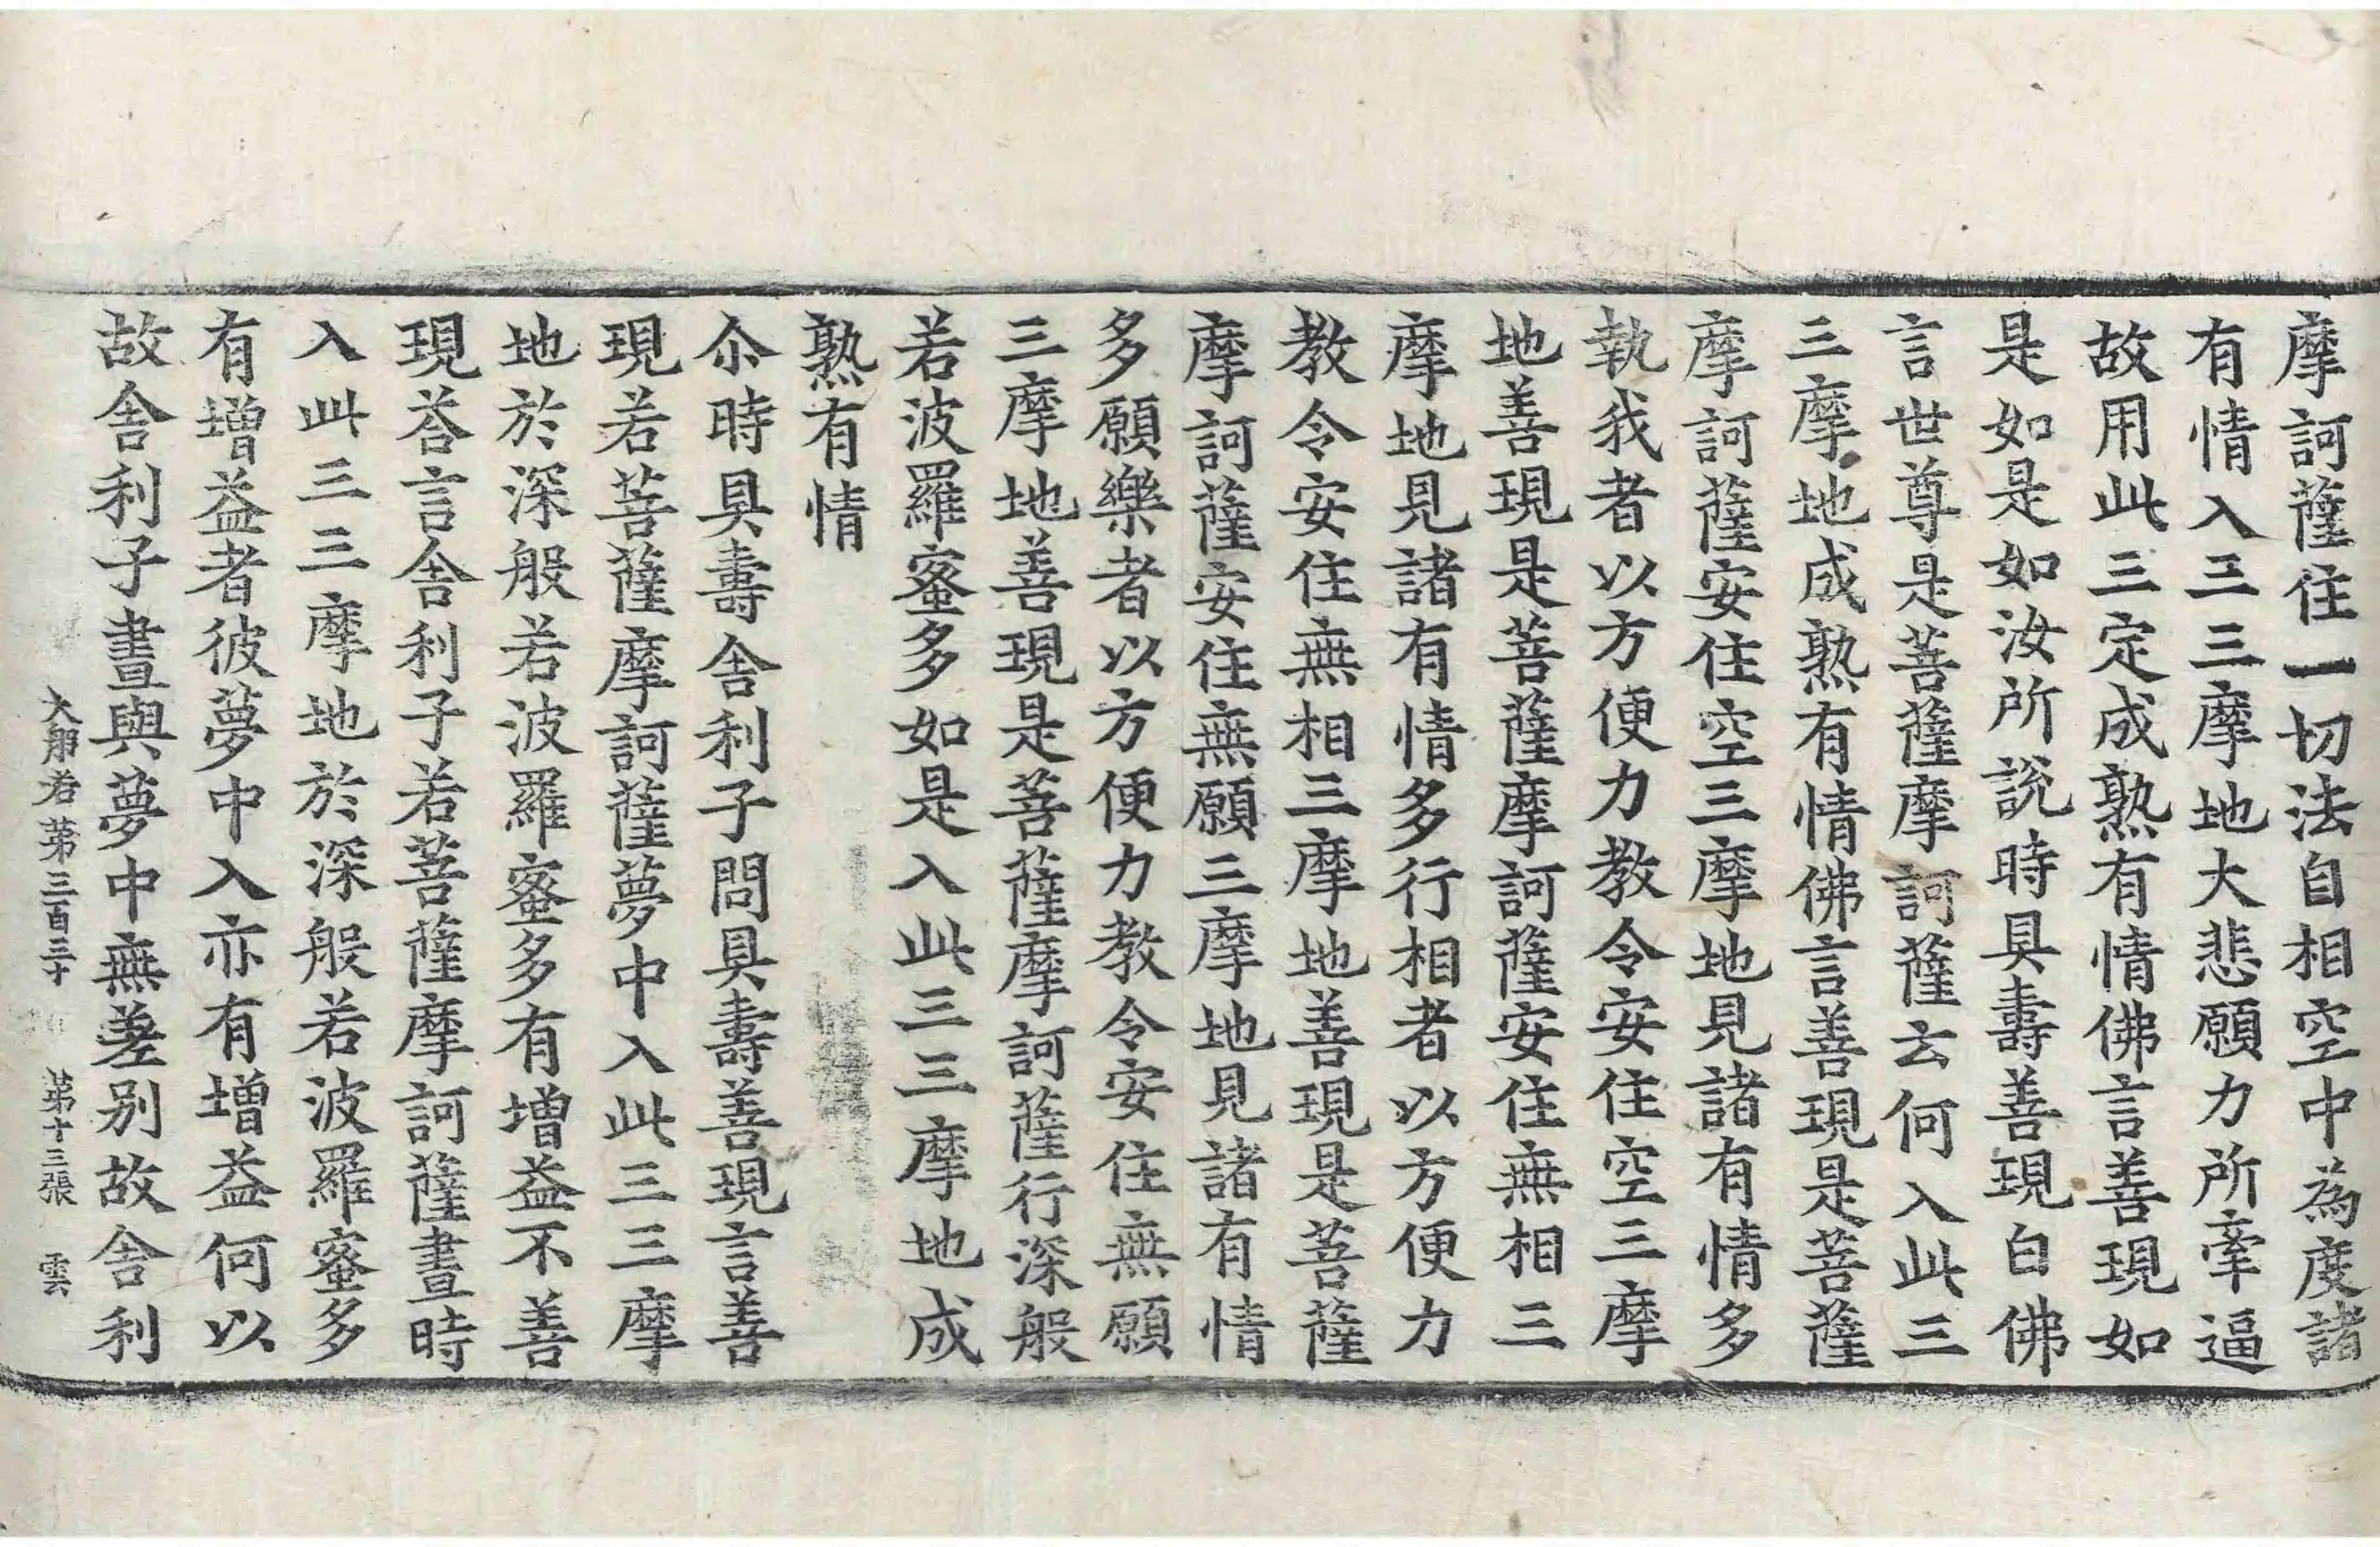 摩訶薩住一切法自相空中為度諸
有情入三三摩地大悲願力所牽逼
故用此三定成熟有情佛言善現如
是如是如汝所說時具壽善現白佛
言世尊是菩薩摩訶薩云何入此三
三摩地成熟有情佛言善現是菩薩
摩訶薩安住空三摩地見諸有情多
執我者以方便力教令安住空三摩
地善現是菩薩摩訶薩安住無相三
摩地見諸有情多行相者以方便力
教令安住無相三摩地善現是菩薩
摩訶薩安住無願三摩地見諸有情
多願樂者以方便力教令安住無願
三摩地善現是菩薩摩訶薩行深般
若波羅蜜多如是入此三三摩地成
熟有情
尒時具壽舍利子問具壽善現言善
現若菩薩摩訶薩夢中入此三三摩
地於深般若波羅蜜多有增益不善
現荅言舍利子若菩薩摩訶薩晝時
入此三三摩地於深般若波羅蜜多
有增益者彼夢中入亦有增益何以
故舍利子晝與夢中無差別故舍利
大般若第三百三十　第十三張　雲